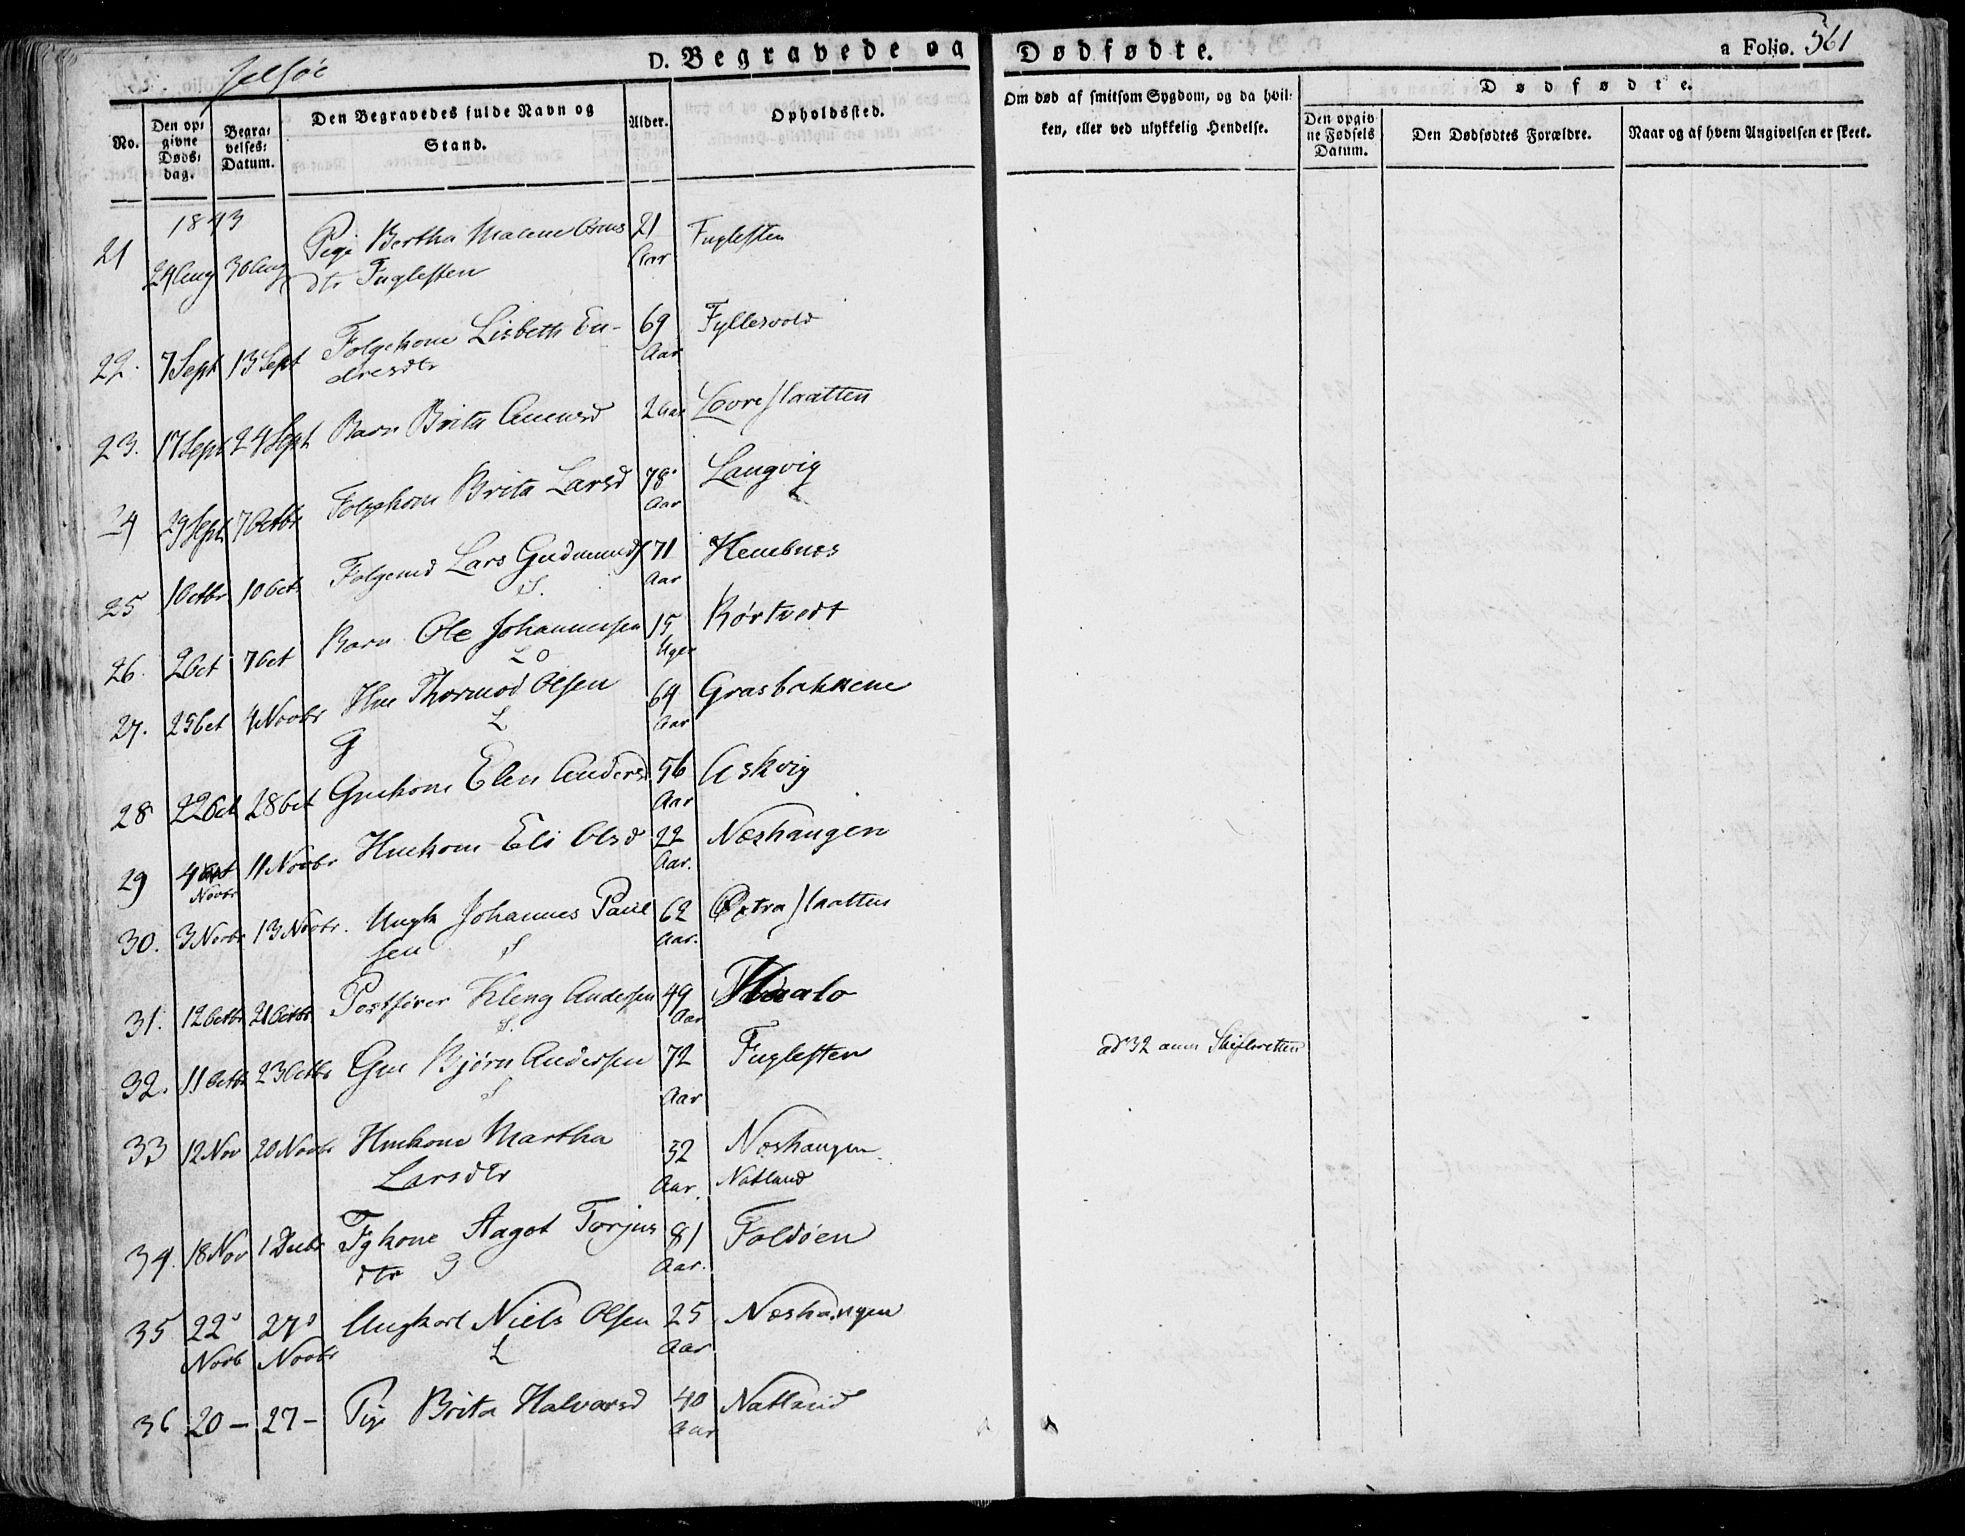 Jelsøe
D. Begravede og Dødfødte.
a Folio. 561
No.
Den opgivne Døds-dag.
Begravelses-Datum.
Den Begravedes fulde Navn og Stand.
Alder.
Opholdssted.
Om død af smitsom Sygdom, og da hvilken, eller ved ulykkelig Hendelse.
Dødfødte.
Den opgivne Fødsels Datum.
Den Dødfødtes Forældre.
Naar og af hvem Angivelsen er skeet.
1843
21 24 Aug 30 Aug Pige Bertha Malene 21 Fuglesten
dtr Fuglesten Aar
22. 7 Sept 13 Sept Folgekone Lisbeth En- 69 Fyllesvold
dresdtr Aar
23. 17 Sept 24 Sept Barn Brita 2 Aar Lovreslaatten
24 29 Sept 7 Octbr Folgekone Brita Larsd 78 Langvig
Aar
25 1 Octbr 10 Oct Folgemd Lars Gudmunds 71 Hemebnes
S. Aar
26. 2 Oct 7 Oct Barn Ole Johannessen 15 Rørtvedt
Uger
27. 25 Oct 4 Novbr Hm Thormod Olsen 64 Grasbakkene
L Aar
G
28 22 Oct 28 Oct Gmkone Elen Andersd 56 Askvig
Aar
29 4 Novbr 11 Novbr Hmkone Eli Olsd 22 Neshaugen
Aar.
30. 3 Novbr 13 Novbr. Ungk Johannes Paul 62 Øxtraslaatten
sen S Aar.
31. 12 Octbr 21 Octbr Postfører Kleng Andersen 49
S. Aar
32. 11 Octb 23 Octbr Gm Bjørn Andersen 72 Fuglesten
S Aar
ad 32 anm Skifteretten
33 12 Nov 20 Novbr Hmkone Martha 32 Neshaugen.
Larsdtr Aar. Natland
34. 18 Nov 1 Decbr Fgkone Aagot Torjus 81 Foldøen
dtr Aar.
35 22 27 Ungkarl Niels Olsen 25 Neshaugen
Novb Novbr L Aar
36 20 - 27 - Pige Brita Halvorsd 40 Natland
Aar